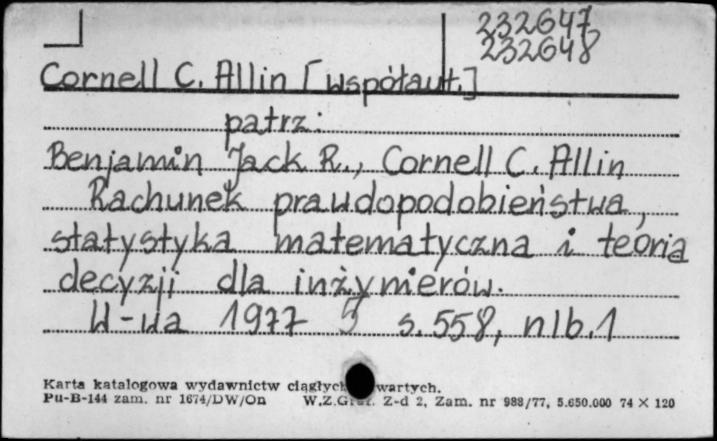 232647
232648
Cornell C. Allin [współaut.]
patrz:
Benjamin Jack R., Cornell C. Allin
Rachunek prawdopodobieństwa,
statystyka matematyczna i teoria
decyzji dla inżynierów.
W-wa 1977 s. 558, nlb. 1
Karta katalogowa wydawnictw ciągłych wartych.
Pu-B-144 zam. nr 1674/DW/On W.Z.Graf. Z-d 2, Zam. nr 988/77, 5.650.000 74 X 120